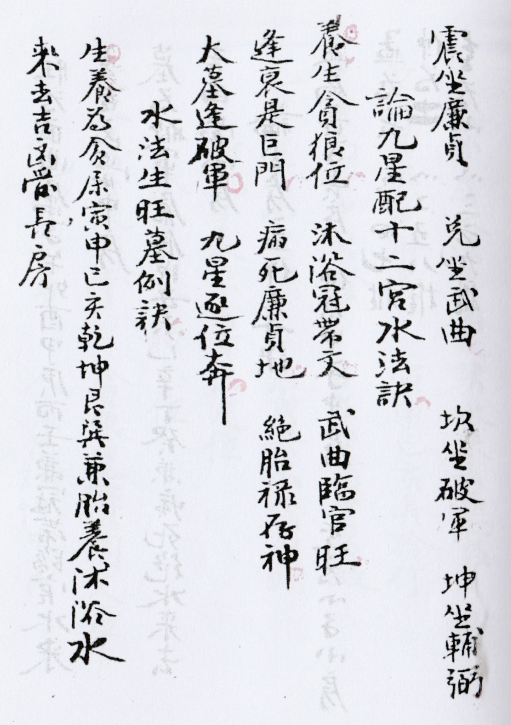 震坐廉貞 兌坐武曲 坎坐破軍 坤坐輔弼
論九星配十二宮水法訣
養生貪狼位 沐浴冠帶文 武曲臨官旺
逢衰是巨門 病死廉貞地 絕胎祿存神
大墓逢破軍 九星逐位奔
水法生旺墓例訣
生養為貪屬寅申巳亥乾坤艮巽兼胎養沐浴水
來去吉凶當長房